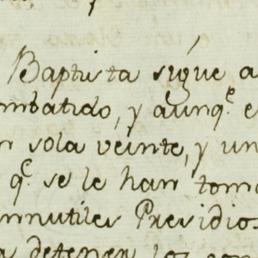 Baptista sigue a
mbatido, y aunq.^e e
n sola veinte, y un
q.^e se le han toma
nnutiles Presidio
a detener los con